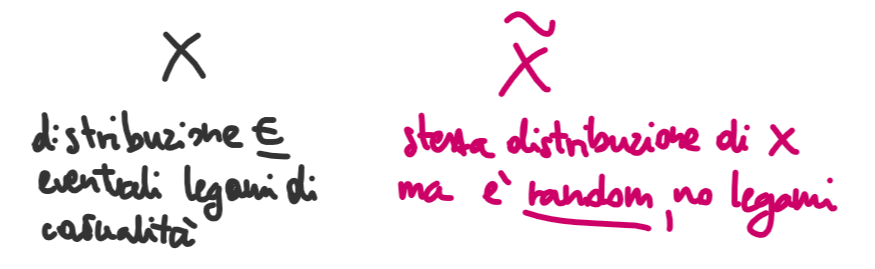 X
distribuzione E
eventuali legami di
casualità
X̃
stessa distribuzione di X
ma è random, no legami